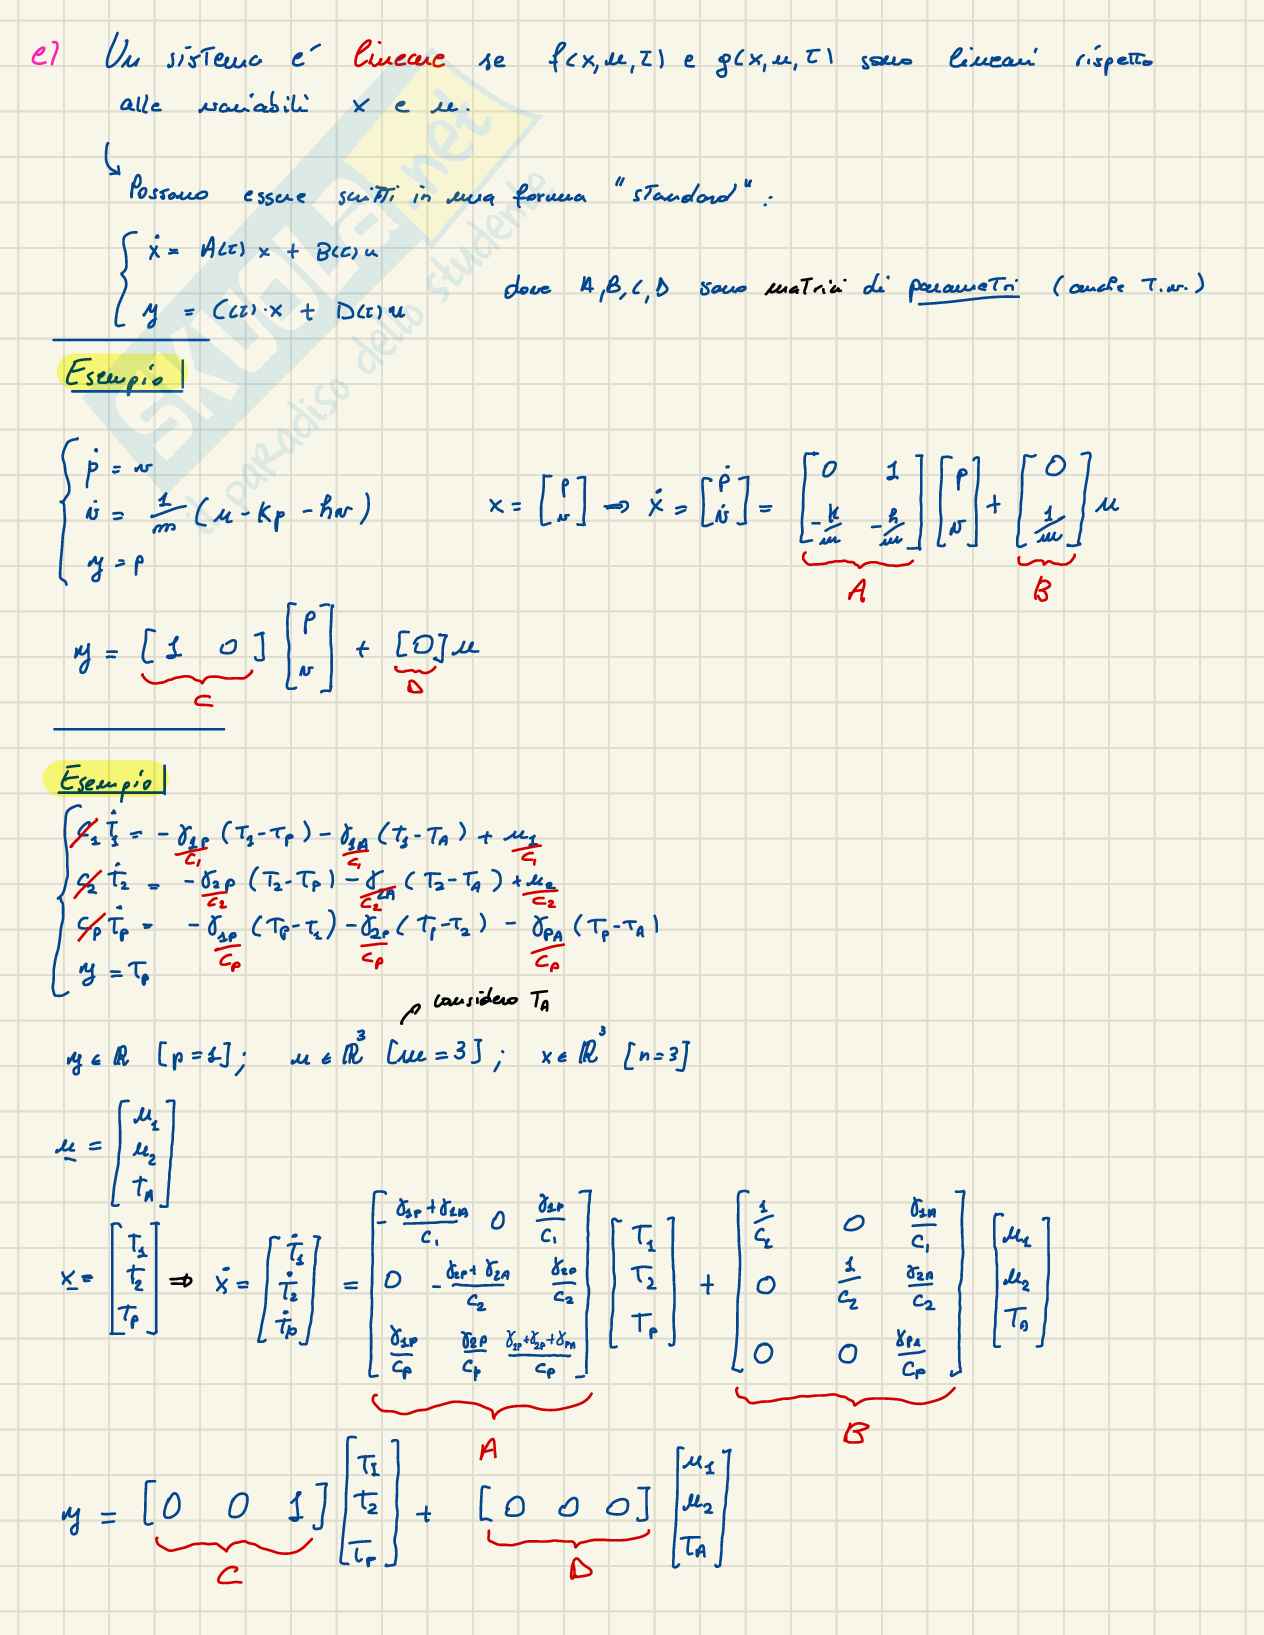 e) Un sistema é lineare se f(x,u,t) e g(x,u,t) sono lineari rispetto
alle variabili x e u.
↳ Possono essere scritti in una forma "standard":
{ ẋ = A(t) x + B(t) u
{ y = C(t)·x + D(t) u
dove A,B,C,D sono matrici di parametri (anche T.v.)
Esempio
{ ṗ = v
{ v̇ = 1/m (u - Kp - hv)
{ y = p
x = [p; v] => ẋ = [ṗ; v̇] = [0 1; -k/m -h/m] [p; v] + [0; 1/m] u
A B
y = [1 0] [p; v] + [0] u
C D
Esempio
{ C₁ Ṫ₁ = - γ₁P/C₁ (T₁-TP) - γ₁A/C₁ (T₁-TA) + u₁/C₁
{ C₂ Ṫ₂ = - γ₂P/C₂ (T₂-TP) - γ₂A/C₂ (T₂-TA) + u₂/C₂
{ CP ṪP = - γ₁P/CP (TP-T₁) - γ₂P/CP (TP-T₂) - γPA/CP (TP-TA)
{ y = TP
considero TA
y ∈ ℝ [p=1]; u ∈ ℝ³ [m=3]; x ∈ ℝ³ [n=3]
u = [u₁; u₂; TA]
x = [T₁; T₂; TP] => ẋ = [Ṫ₁; Ṫ₂; ṪP] = [-(γ₁P+γ₁A)/C₁ 0 γ₁P/C₁; 0 -(γ₂P+γ₂A)/C₂ γ₂P/C₂; γ₁P/CP γ₂P/CP (γ₁P+γ₂P+γPA)/CP] [T₁; T₂; TP] + [1/C₁ 0 γ₁A/C₁; 0 1/C₂ γ₂A/C₂; 0 0 γPA/CP] [u₁; u₂; TA]
A B
y = [0 0 1] [T₁; T₂; TP] + [0 0 0] [u₁; u₂; TA]
C D
SKUOLA.net
il paradiso dello studente